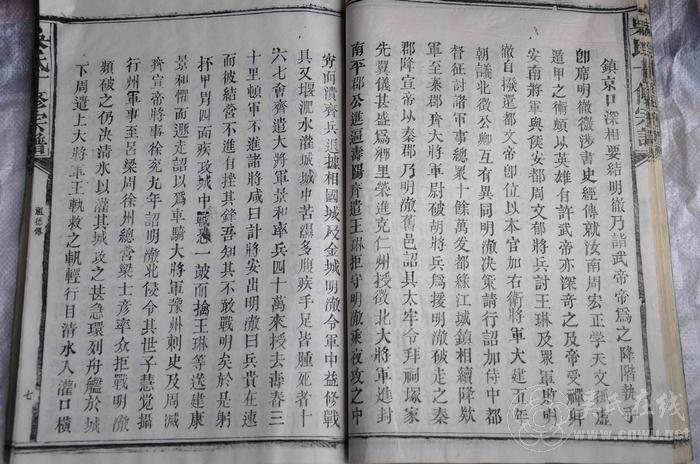 鎮京口深相要結明徹乃詣武帝帝爲之降階執
卽席明徹微涉書史經傳就汝南周宏正學天文孤虛
遁甲之術頗以英雄自許武帝亦深奇之及帝受禪拜
安南將軍與侯安都周文郁將兵討王琳及眾軍敗明
徹自拔還都文帝卽位以本官加右衛將軍大建五年
朝議北徵公卿互有異同明徹決策請行詔加侍中都
督征討諸軍事總眾十餘萬發都緣江城鎮相續降欵
軍至秦郡齊大將軍尉破胡將兵爲援明徹破走之秦
郡降宣帝以秦郡乃明徹舊邑詔具太牢令拜祠塚家
先翼儀甚盛爲鄉里榮進克仁州授徵北大將軍進封
南平郡公進逼壽陽齊遣王琳拒守明徹乘夜攻之中
宵而潰齊兵退據相國城及金城明徹令軍中益修戰
具又堰淝水灌城城中苦濕多腹疾手足皆腫死者十
六七會齊遣大將軍景和率兵四十萬來授去壽春三
十里頓軍不進諸將咸曰計將安出明徹曰兵貴在速
而彼結營不進自挫其鋒吾知其不敢戰明矣於是躬
抔甲冑四面疾攻城中戰恐一鼓而擒王琳等送建康
景和懼而遯走詔以爲車騎大將軍豫州刺史及周滅
齊宣帝將事徐兗九年詔明徹北侵令其世子慧覺攝
行州軍事至呂梁周徐州總管梁士彥率眾拒戰明徹
頻破之仍決清水以灌其城攻之甚急環列舟艦於城
下周遣上大將軍王軌救之軌輕行自清水入灌口橫
七
吳氏在線
www.cnwu.net